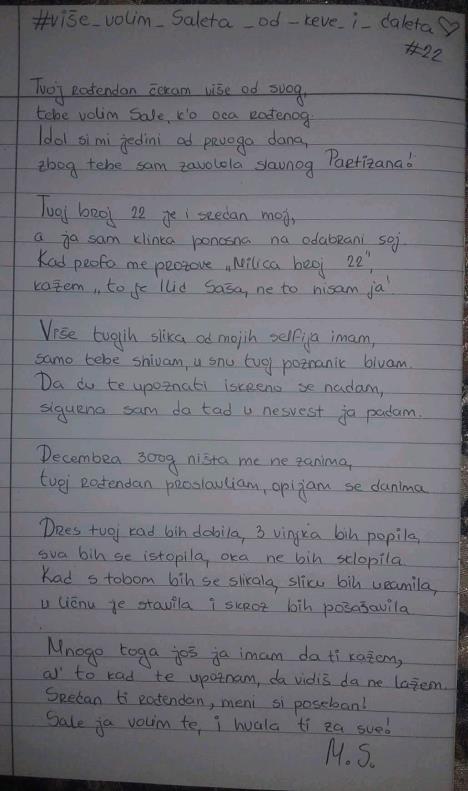 #više_volim_Saleta_od_keve_i_ćaleta♡
#22
Tvoj rođendan čekam više od svog,
tebe volim Sale, k'o oca rođenog.
Idol si mi jedini od prvoga dana,
zbog tebe sam zavolela slavnog Partizana!
Tvoj broj 22 je i srećan moj,
a ja sam klinka ponosna na odabrani soj.
Kad profa me prozove „Milica broj 22",
kažem „to je Ilić Saša, ne to nisam ja!
Više tvojih slika od mojih selfija imam,
samo tebe snivam, u snu tvoj poznanik bivam.
Da ću te upoznati iskreno se nadam,
sigurna sam da tad u nesvest ja padam.
Decembra 30og ništa me ne zanima,
tvoj rođendan proslavljam, opijam se danima
Dres tvoj kad bih dobila, 3 vinjka bih popila,
sva bih se istopila, oka ne bih sklopila.
Kad s tobom bih se slikala, sliku bih uramila,
u ličnu je stavila i skroz bih pošašavila
Mnogo toga još ja imam da ti kažem,
al' to kad te upoznam, da vidiš da ne lažem.
Srećan ti rođendan, meni si poseban!
Sale ja volim te, i hvala ti za sve!
M.S.